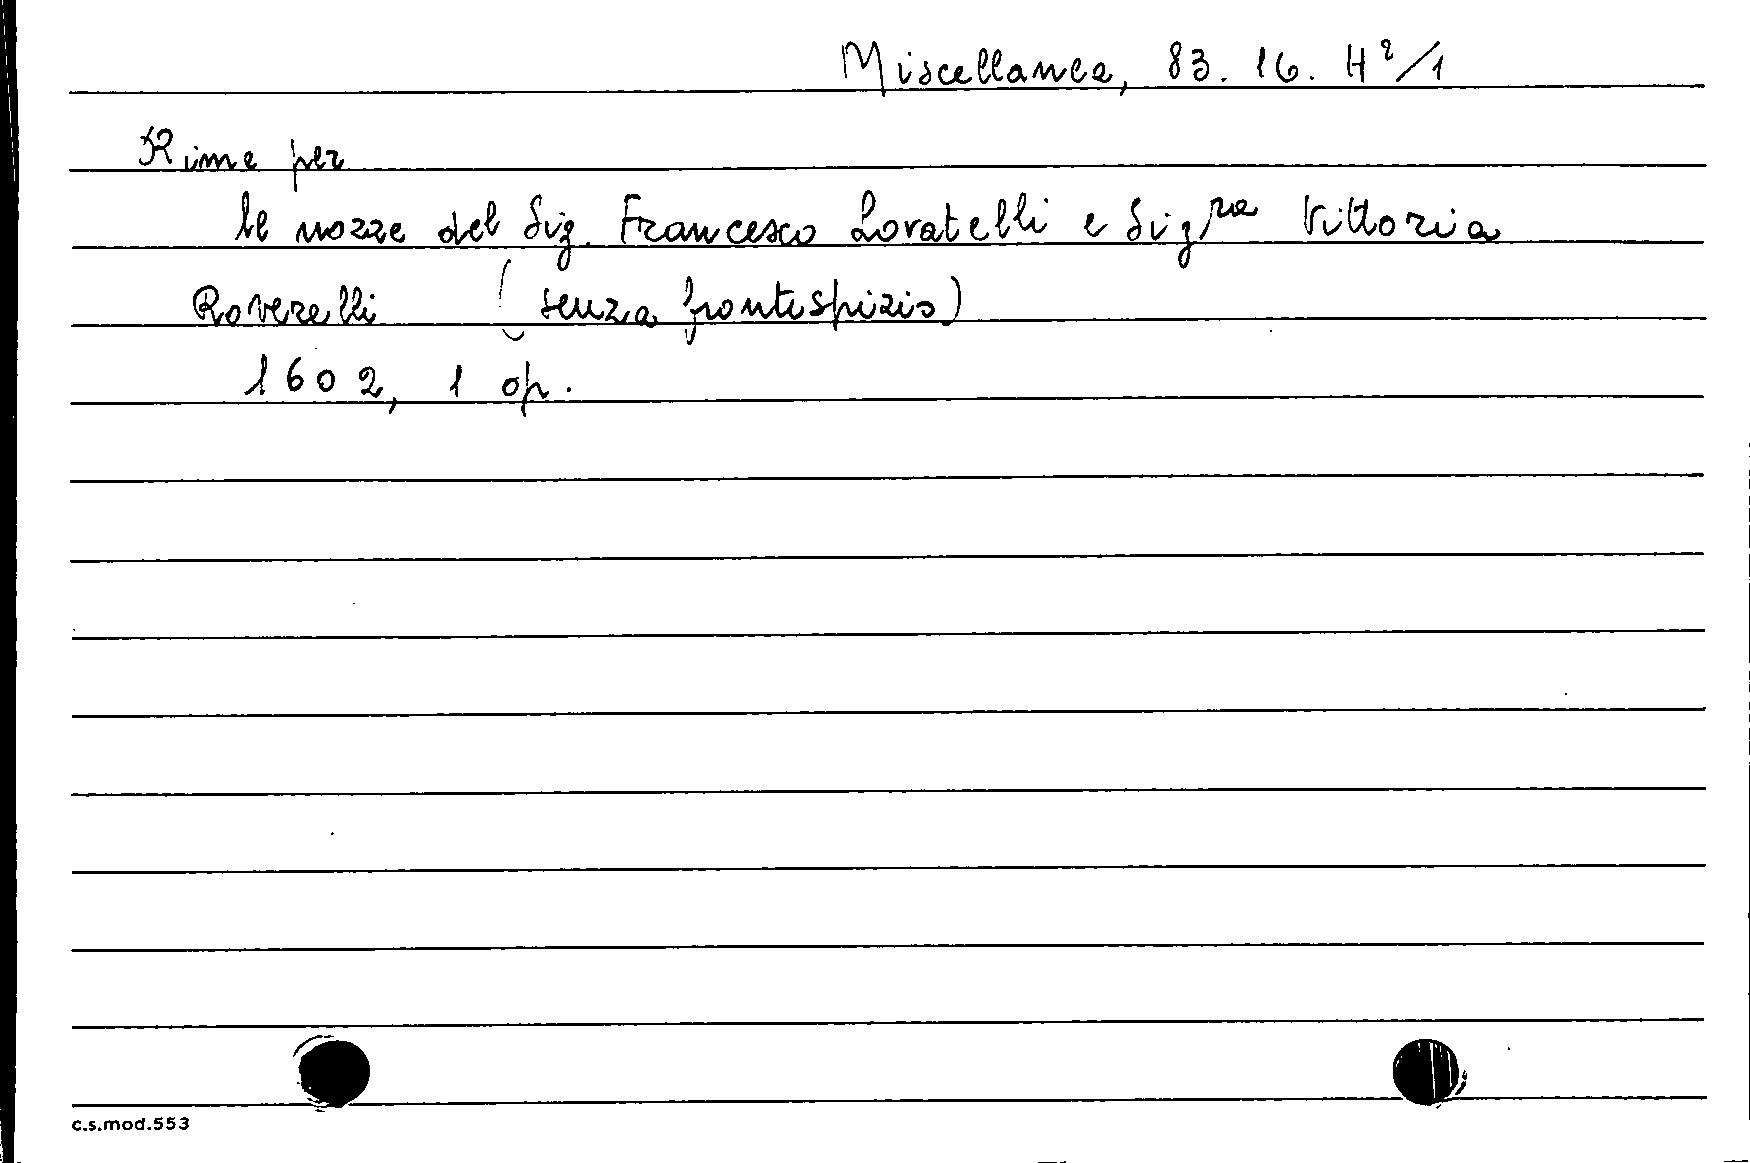 Miscellanea, 83. 16. H²/1
Rime per
le nozze del Sig. Francesco Lovatelli e Sigra Vittoria
Roverelli (senza frontespizio)
1602, 1 op.
c.s.mod.553